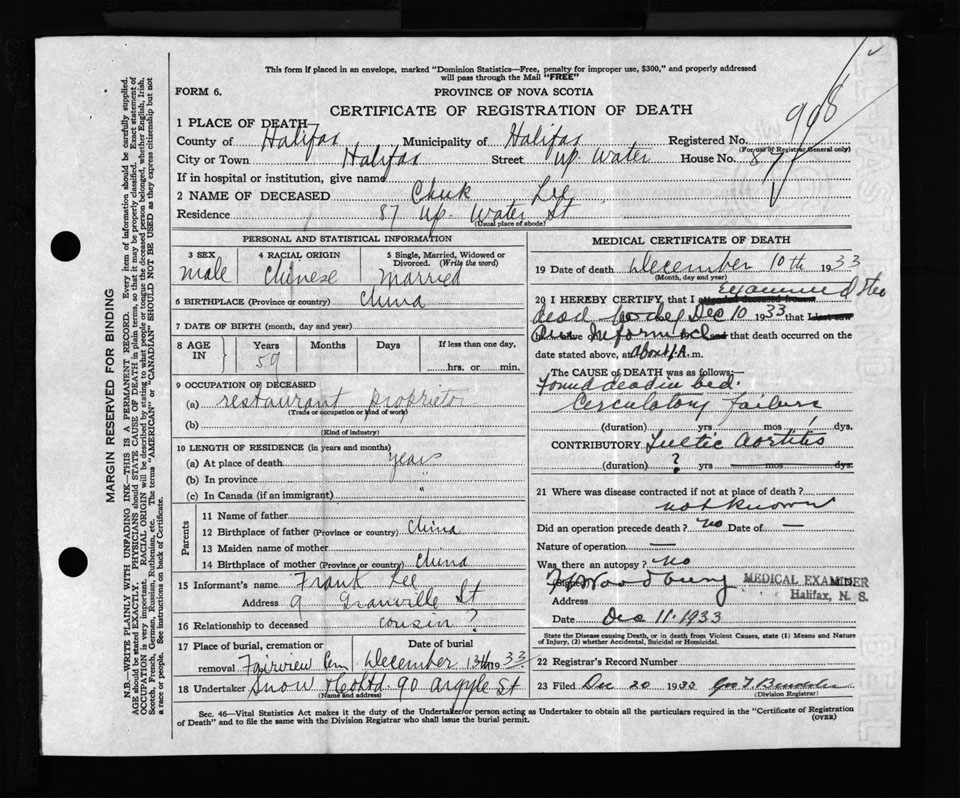 This form if placed in an envelope, marked "Dominion Statistics—Free, penalty for improper use, $300," and properly addressed
will pass through the Mail "FREE"
FORM 6. PROVINCE OF NOVA SCOTIA
CERTIFICATE OF REGISTRATION OF DEATH
908
1 PLACE OF DEATH
County of Halifax Municipality of Halifax Registered No.
(For use of Registrar General only)
City or Town Halifax Street Up. Water House No. 87
If in hospital or institution, give name
2 NAME OF DECEASED Chuk Lee
Residence 87 Up. Water St
(Usual place of abode)
PERSONAL AND STATISTICAL INFORMATION
3 SEX 4 RACIAL ORIGIN 5 Single, Married, Widowed or
Divorced. (Write the word)
male Chinese Married
6 BIRTHPLACE (Province or country) China
7 DATE OF BIRTH (month, day and year)
8 AGE IN Years Months Days If less than one day,
59 hrs. or min.
9 OCCUPATION OF DECEASED
(a) restaurant proprietor
(Trade or occupation or kind of work)
(b)
(Kind of industry)
10 LENGTH OF RESIDENCE (in years and months)
(a) At place of death years
(b) In province "
(c) In Canada (if an immigrant)
Parents
11 Name of father
12 Birthplace of father (Province or country) China
13 Maiden name of mother
14 Birthplace of mother (Province or country) China
15 Informant's name Frank Lee
Address 9 Granville St
16 Relationship to deceased cousin ?
17 Place of burial, cremation or Date of burial
removal Fairview Cem December 13th 1933
18 Undertaker Snow & Co Ltd. 90 Argyle St
(Name and address)
MEDICAL CERTIFICATE OF DEATH
19 Date of death December 10th 1933
(Month, day and year)
20 I HEREBY CERTIFY, that I attended deceased from examined the
dead body Dec 10 1933 that I last saw
am informed and that death occurred on the
date stated above, at About 1 A. m.
The CAUSE OF DEATH was as follows:—
Found dead in bed.
Circulatory Failure
(duration) yrs mos 1 dys.
CONTRIBUTORY Luetic Aortitis
(duration) ? yrs mos dys.
21 Where was disease contracted if not at place of death?
not known
Did an operation precede death? no Date of —
Nature of operation —
Was there an autopsy? no
Woodbury MEDICAL EXAMINER
Halifax, N. S.
Address
Date Dec 11. 1933
State the Disease causing Death, or in death from Violent Causes, state (1) Means and Nature
of Injury, (2) whether Accidental, Suicidal or Homicidal.
22 Registrar's Record Number
23 Filed Dec 20 1933 Geo T.
(Division Registrar)
Sec. 46—Vital Statistics Act makes it the duty of the Undertaker or person acting as Undertaker to obtain all the particulars required in the "Certificate of Registration
of Death" and to file the same with the Division Registrar who shall issue the burial permit. (OVER)
MARGIN RESERVED FOR BINDING
N.B.—WRITE PLAINLY WITH UNFADING INK—THIS IS A PERMANENT RECORD. Every item of information should be carefully supplied.
AGE should be stated EXACTLY. PHYSICIANS should STATE CAUSE OF DEATH in plain terms, so that it may be properly classified. Exact statement of
OCCUPATION is very important. RACIAL ORIGIN will be described by stating to what people or tongue the deceased person belonged, whether English, Irish,
Scotch, French, German, Russian, Ruthenian, etc. The terms "AMERICAN" or "CANADIAN" SHOULD NOT BE USED as they express citizenship but not
a race or people. See instructions on back of Certificate.